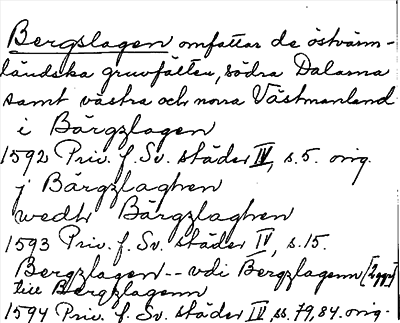 Bergslagen omfattar de östvärm-
ländska gruvfälten, södra Dalarna
samt västra och norra Västmanland
i Bärgzlagen
1592 Priv. f. Sv. städer IV, s. 5. orig.
j Bärgzlaghen
wedtr Bärgzlaghen
1593 Priv. f. Sv. städer IV, s. 15.
Bergzlagen -- vdi Bergzlagenn [2 ggr]
till Bergzlagenn
1594 Priv. f. Sv. städer IV, ss. 79, 84. orig.